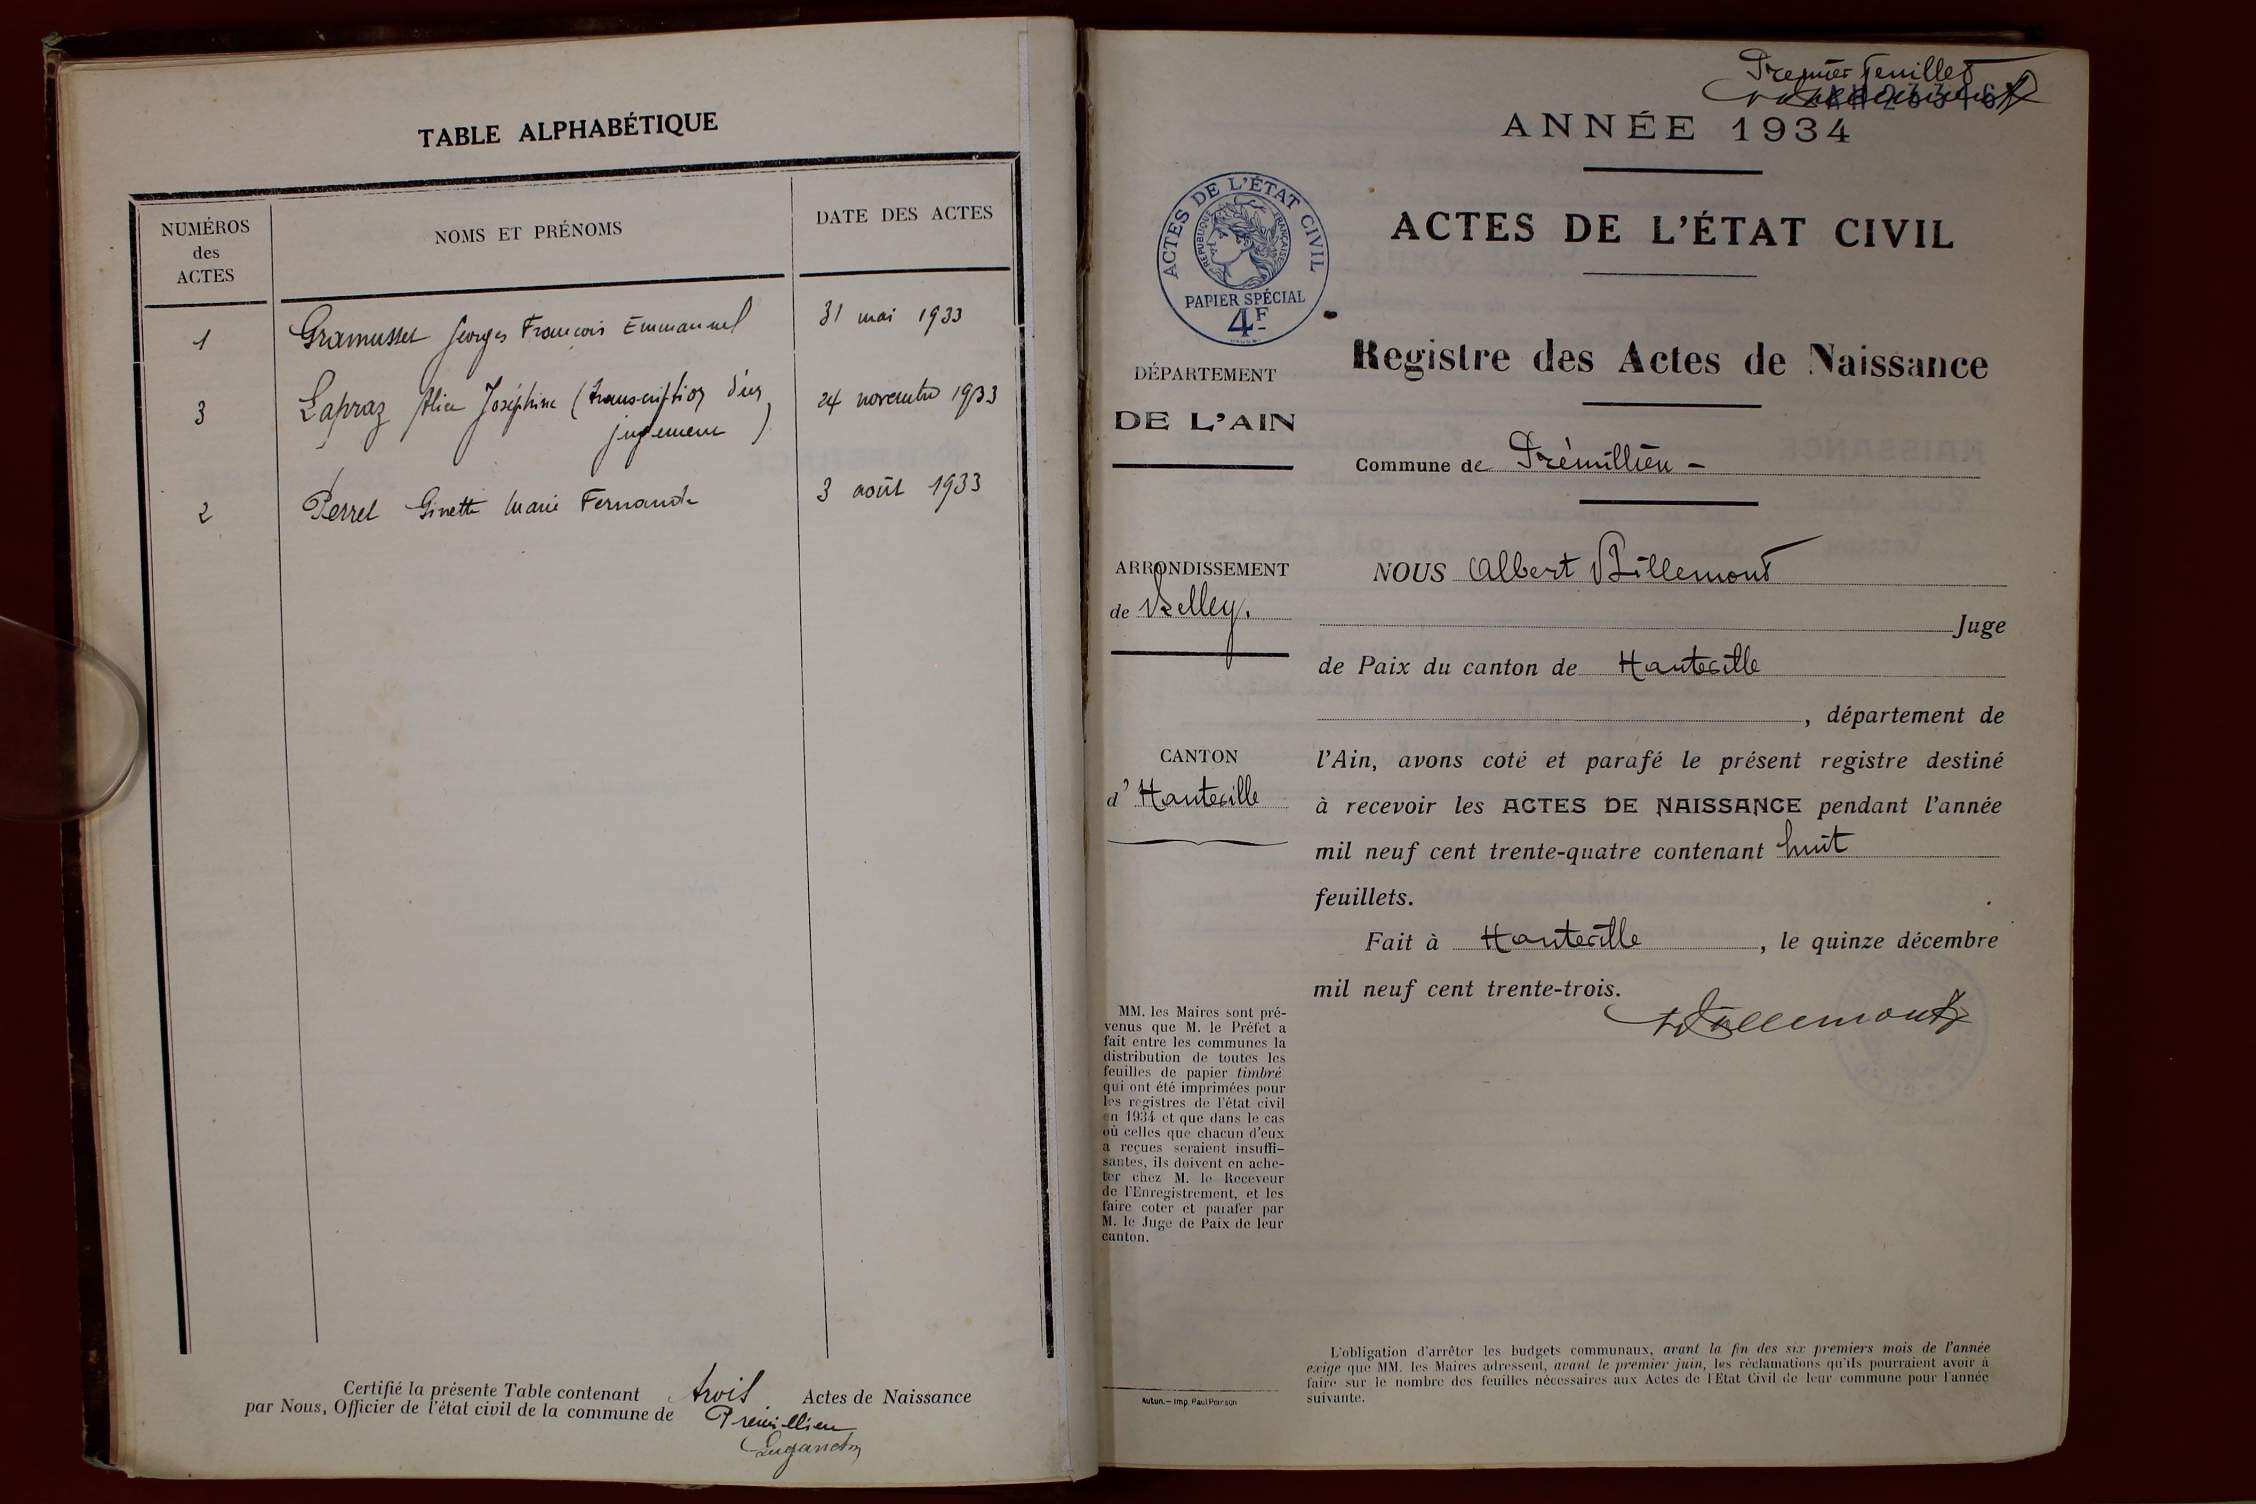 TABLE ALPHABÉTIQUE
NUMÉROS
des
ACTES
NOMS ET PRÉNOMS
DATE DES ACTES
1 Gramusset Georges François Emmanuel 31 mai 1933
3 Lapraz Alice Joséphine (transcription d'un 24 novembre 1933
jugement)
2 Perret Ginette Marie Fernande 3 août 1933
Certifié la présente Table contenant trois Actes de Naissance
par Nous, Officier de l'état civil de la commune de Prémillieu
Premier feuillet
ANNÉE 1934
ACTES DE L'ÉTAT CIVIL
RÉPUBLIQUE FRANÇAISE
PAPIER SPÉCIAL
4F
ACTES DE L'ÉTAT CIVIL
Registre des Actes de Naissance
DÉPARTEMENT
DE L'AIN
Commune de Prémillieu -
ARRONDISSEMENT
de Belley.
CANTON
d'Hauteville
NOUS Albert Billemont
Juge
de Paix du canton de Hauteville
, département de
l'Ain, avons coté et parafé le présent registre destiné
à recevoir les ACTES DE NAISSANCE pendant l'année
mil neuf cent trente-quatre contenant huit
feuillets.
Fait à Hauteville, le quinze décembre
mil neuf cent trente-trois.
Billemont
MM. les Maires sont pré-
venus que M. le Préfet a
fait entre les communes la
distribution de toutes les
feuilles de papier timbré
qui ont été imprimées pour
les registres de l'état civil
en 1934 et que dans le cas
où celles que chacun d'eux
a reçues seraient insuffi-
santes, ils doivent en ache-
ter chez M. le Receveur
de l'Enregistrement, et les
faire coter et parafer par
M. le Juge de Paix de leur
canton.
Autun. — Imp. Paul Pernson
L'obligation d'arrêter les budgets communaux, avant la fin des six premiers mois de l'année
exige que MM. les Maires adressent, avant le premier juin, les réclamations qu'ils pourraient avoir à
faire sur le nombre des feuilles nécessaires aux Actes de l'Etat Civil de leur commune pour l'année
suivante.